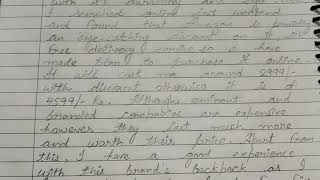 with it's
I searched online and
and found that Amazon is providing
an eye-catching discount on it, and
free delivery service so I have
made plan to purchase it online.
It will cost me around 2999/-
with discount otherwise it is of
4599/- Rs. Although eminent and
branded companies are expensive
however they last much more
and worth their price. Apart from
this, I have a good experience
with this brand's backpack as I